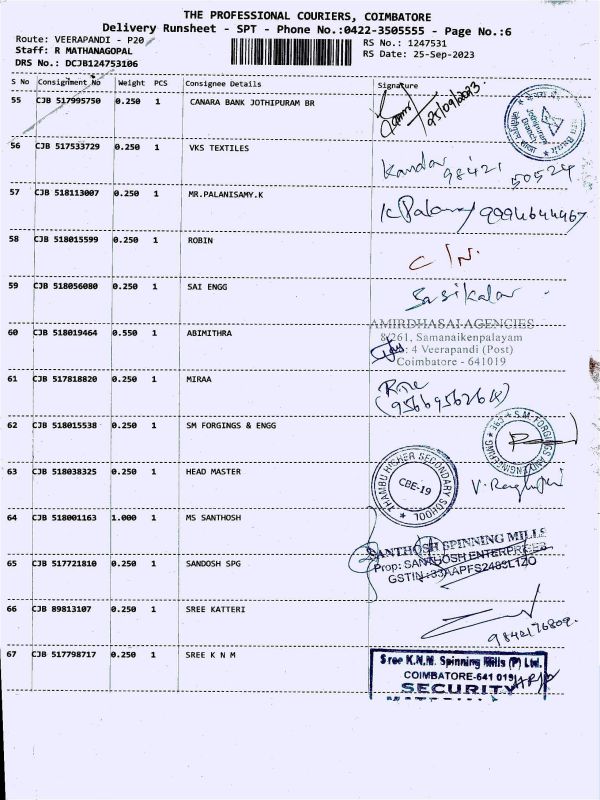 THE PROFESSIONAL COURIERS, COIMBATORE
Delivery Runsheet - SPT - Phone No.:0422-3505555 - Page No.:6
Route: VEERAPANDI - P20
RS No.: 1247531
Staff: R MATHANAGOPAL
RS Date: 25-Sep-2023
DRS No.: DCJB124753106
S No Consignment No Weight PCS Consignee Details Signature
55 CJB 517995750 0.250 1 CANARA BANK JOTHIPURAM BR
25/09/2023
56 CJB 517533729 0.250 1 VKS TEXTILES
98421 50524
57 CJB 518113007 0.250 1 MR.PALANISAMY.K
K Palamy 9994644467
58 CJB 518015599 0.250 1 ROBIN
59 CJB 518056080 0.250 1 SAI ENGG
Sasikalar
AMIRDHASAI AGENCIES
60 CJB 518019464 0.550 1 ABIMITHRA
8/261, Samanaikenpalayam
: 4 Veerapandi (Post)
Coimbatore - 641019
61 CJB 517818820 0.250 1 MIRAA
(9566956264)
62 CJB 518015538 0.250 1 SM FORGINGS & ENGG
S.M.FORGINGS AND ENGINEERING
63 CJB 518038325 0.250 1 HEAD MASTER
THAMBU HIGHER SECONDARY SCHOOL
CBE-19
64 CJB 518001163 1.000 1 MS SANTHOSH
SANTHOSH SPINNING MILLS
Prop: SANTHOSH ENTERPRISES
65 CJB 517721810 0.250 1 SANDOSH SPG
66 CJB 89813107 0.250 1 SREE KATTERI
9842176809.
67 CJB 517798717 0.250 1 SREE K N M
Sree K.N.M. Spinning Mills (P) Ltd.
COIMBATORE-641 019
SECURITY